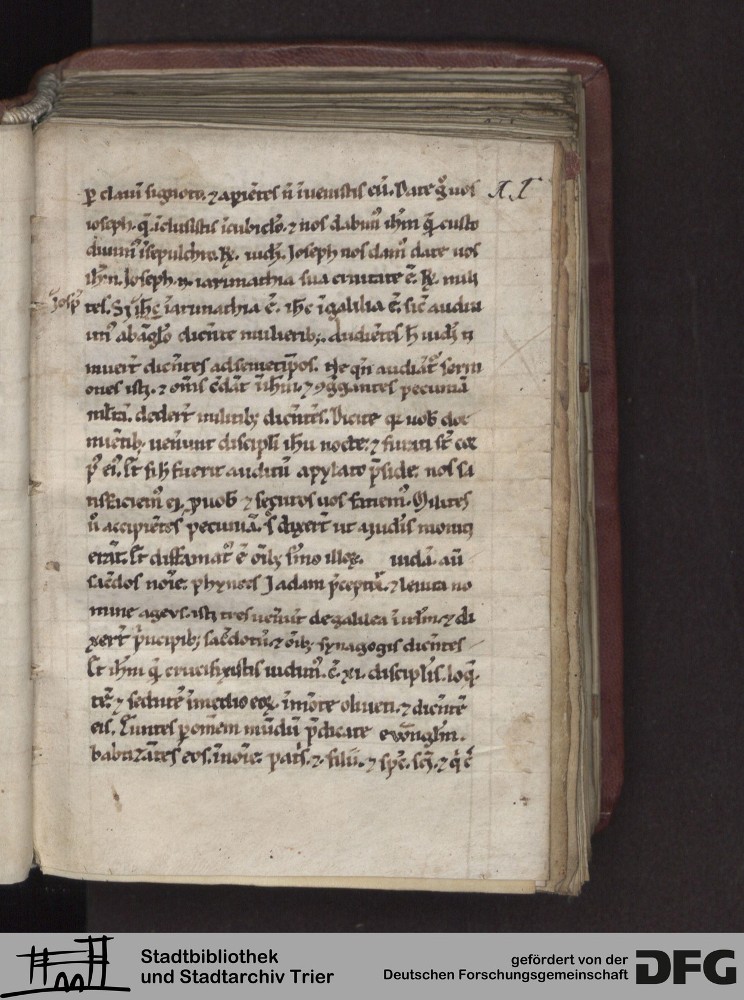 ꝑ clauī signotū. ⁊ apiētes n̄ īuenistis eū. Date ḡ nos
ioseph. q̄ īclusistis ī cubiclo. ⁊ nos dabim᷒ ihm̄ q̄ custo
diuim᷒ ī sepulchro. R̄. iudi. Joseph nos dam᷒ date uos
ihm̄. Joseph. n. iarimathia sua ciuitate ē. R̄. mili
tes. Si ioseph
ī arimathia ē. ihc̄ ī galilia ē. sic̄ audiui
im᷒ ab āglo dicēte mulierib;. Audiētes h̄ iudi ti
muert̄ dicētes ad semetip̄os. Ne qn̄ audiāt᷒ serm
ones isti. ⁊ om̄s c̄dāt ī ihm̄. ⁊ ꝯggantes pecuniā
ml̄tā. dedert̄ militib; dicētes. Dicite qꝛ uob̄ dor
miētib; uenerunt discipl̄i ihu nocte: ⁊ furati st̄ cor
p᷒ ei᷒. Et si h̄ fuerit auditū a pylato p̄side. nos sa
tisfaciem᷒ ei. ꝓ uob̄ ⁊ securos uos faciem᷒. Milites
ū accipiētes pecuniā. s̄ dixert̄ ut a iudi᷒s moniti
erāt. Et diffamat᷒ ē om̄ib; s̄mo illoꝝ. iudā. aū
sac̄dos noīe: phynees Jadam p̄ceptor. ⁊ leuita no
mine ageus. isti tres uener̄t de galilea ī ierl̄m. ⁊ di
xert̄ p̄ncipib; sac̄dotū. ⁊ om̄ib; synagogis dicētes
Et ihm̄ q̄ crucifixistis uidim᷒. c̄. xi. discipl̄is. loq̄
tē. ⁊ sedētē ī medio eoꝝ. ī mōte oliueti. ⁊ dicētē
eis. Eūntes ꝑ omnem mūdū p̄dicate ewangl̄m.
babtizātes eos. ī noīe: pat̄s. ⁊ filii. ⁊ sp̄c. sc̄i. ⁊ q̄ c̄
Stadtbibliothek
und Stadtarchiv Trier
gefördert von der
Deutschen Forschungsgemeinschaft
DFG